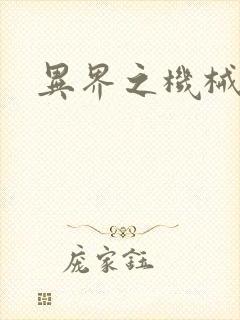 異界之機械
庞家鈺